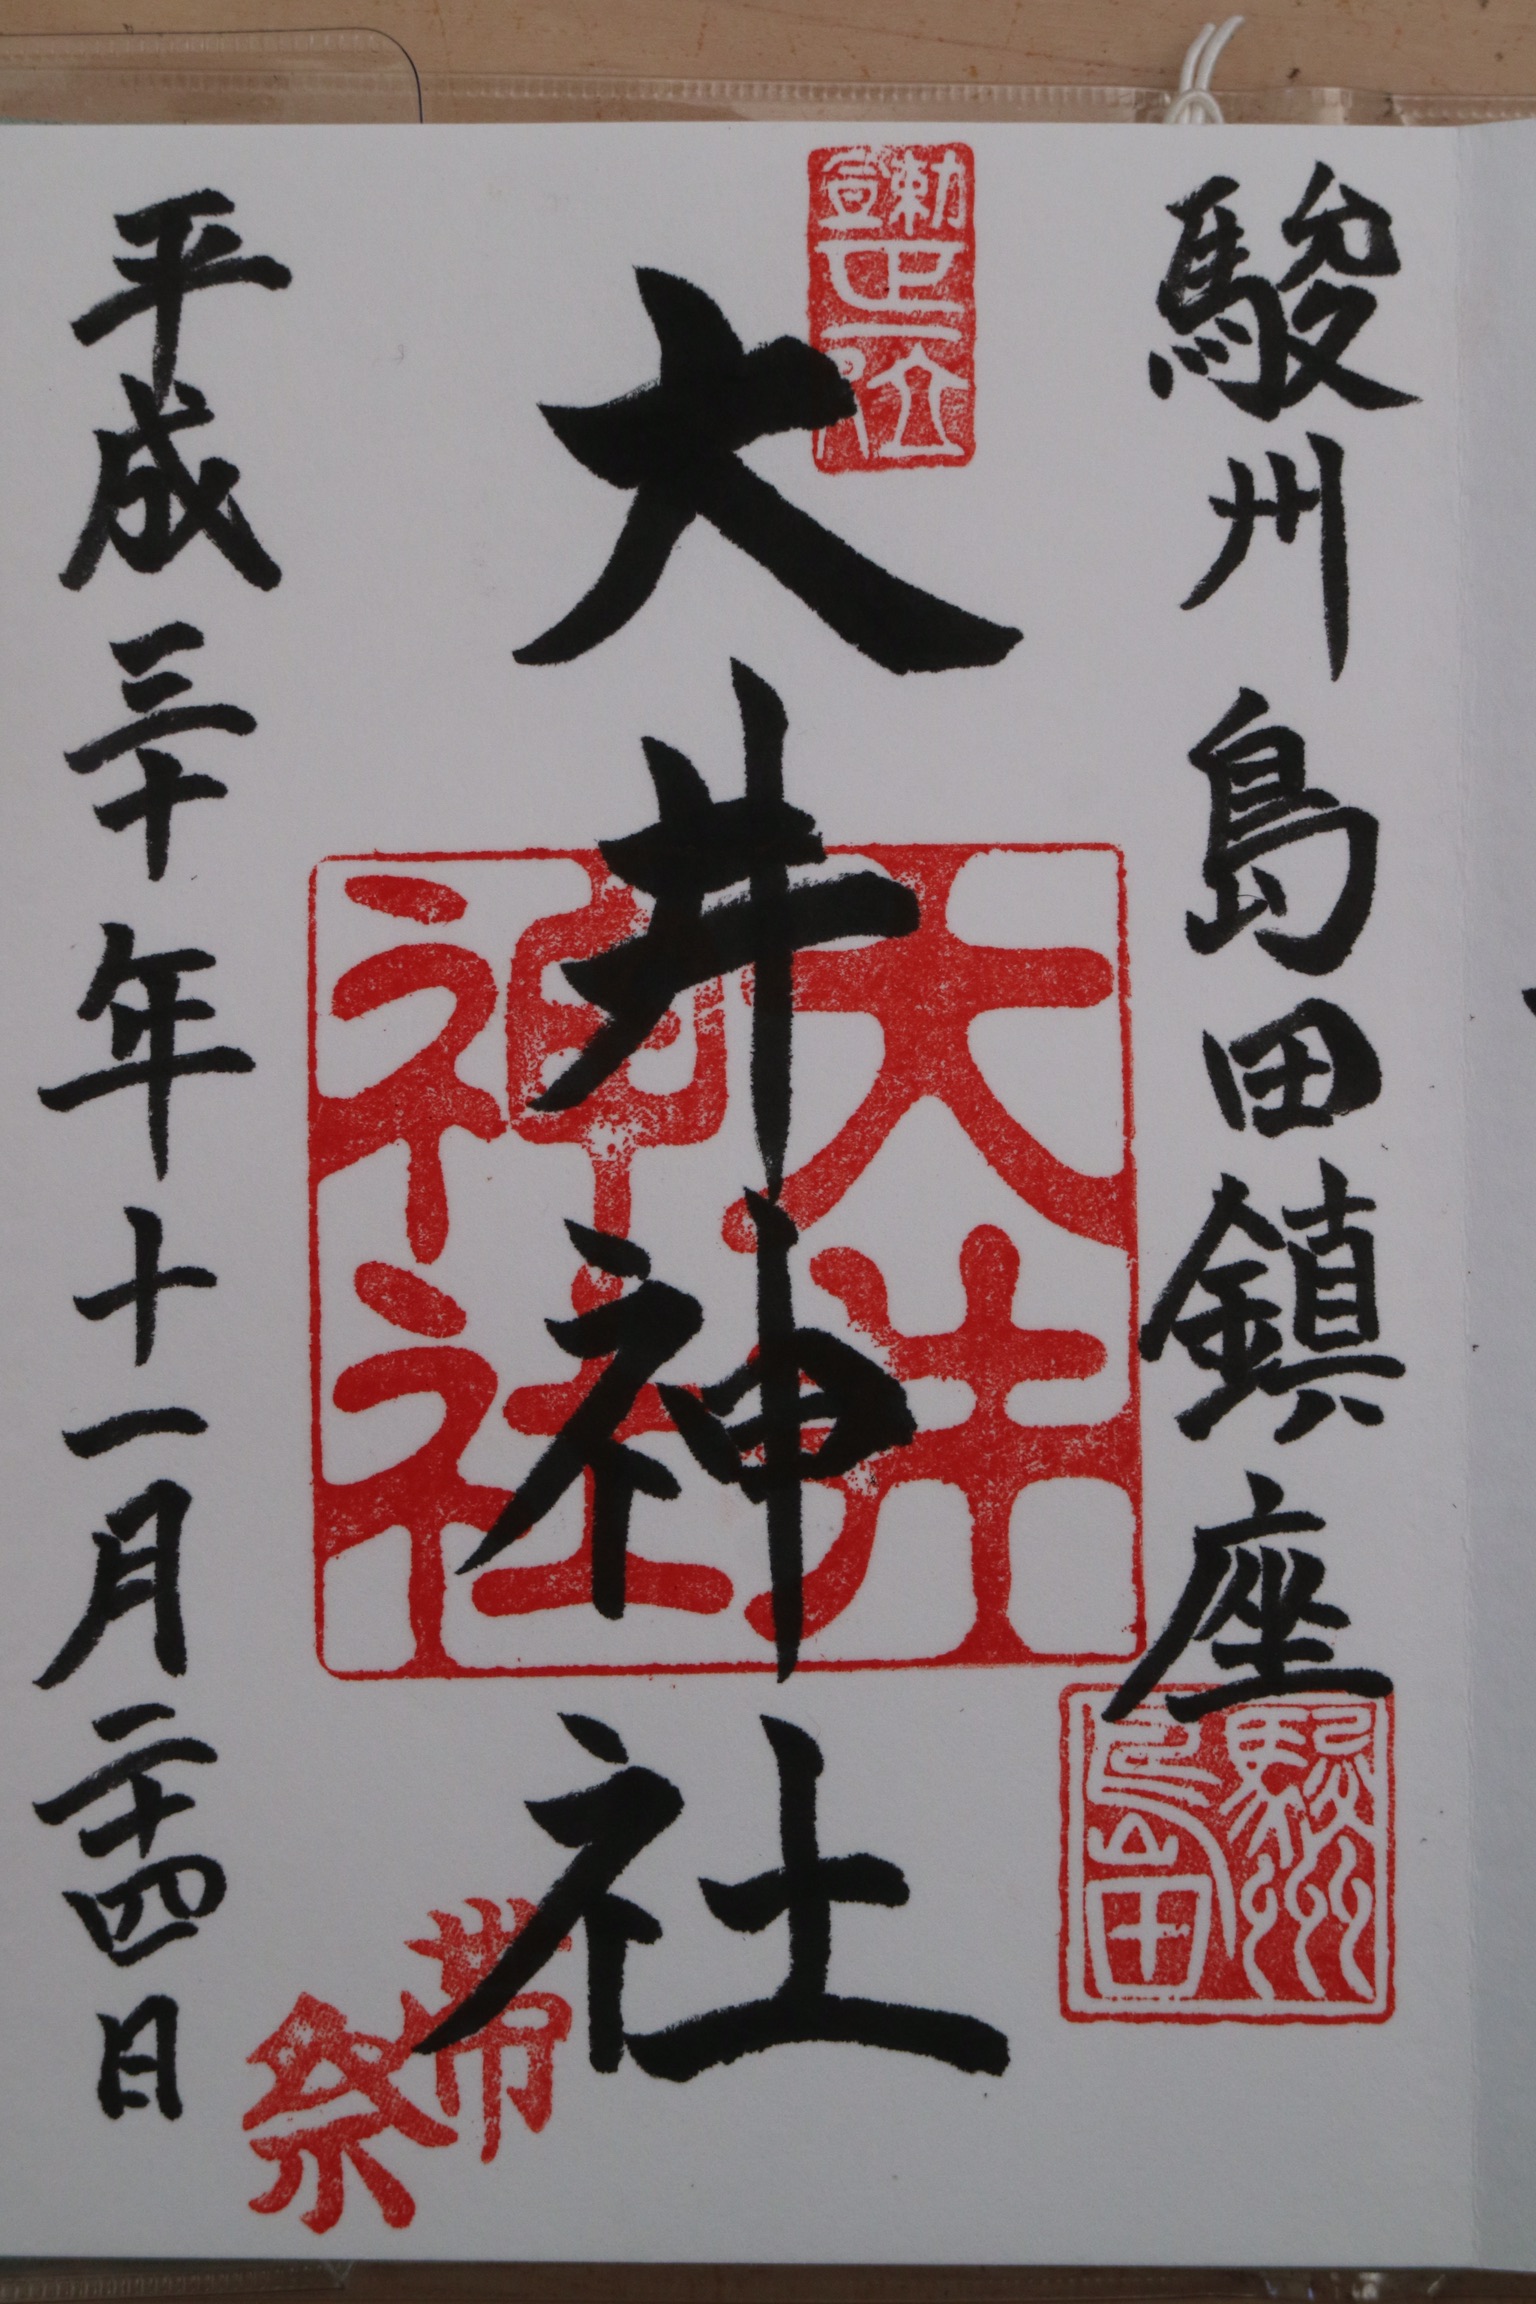 駿州島田鎮座
駿州
島田
勅宣
正一
位
大井神社
大井
神社
帯
祭
平成三十年十一月二十四日